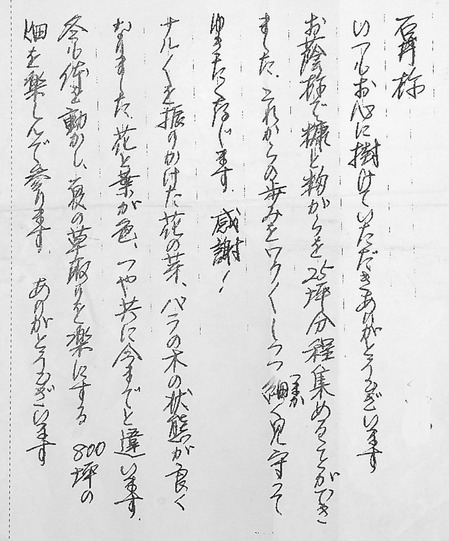 石井様
いつもお心に掛けていただきありがとうございます
お蔭様で糠と籾がらを25坪分程集めることができ
ました。これからの歩みをワクワクしつつ細(こまか)く見守って
ゆきたくなじます 感謝!
ナルクを振りかけた花の芽、バラの木の状態が良く
なりました、花と葉が色、つや共に今までと違います。
冬も体を動かし、夏の草取りを楽にする 800坪の
畑を楽しんで参ります。 ありがとうございます